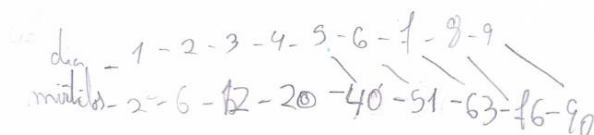 dia - 1 - 2 - 3 - 4 - 5 - 6 - 7 - 8 - 9
mirtilos - 2 - 6 - 12 - 20 - 40 - 51 - 63 - 76 - 90